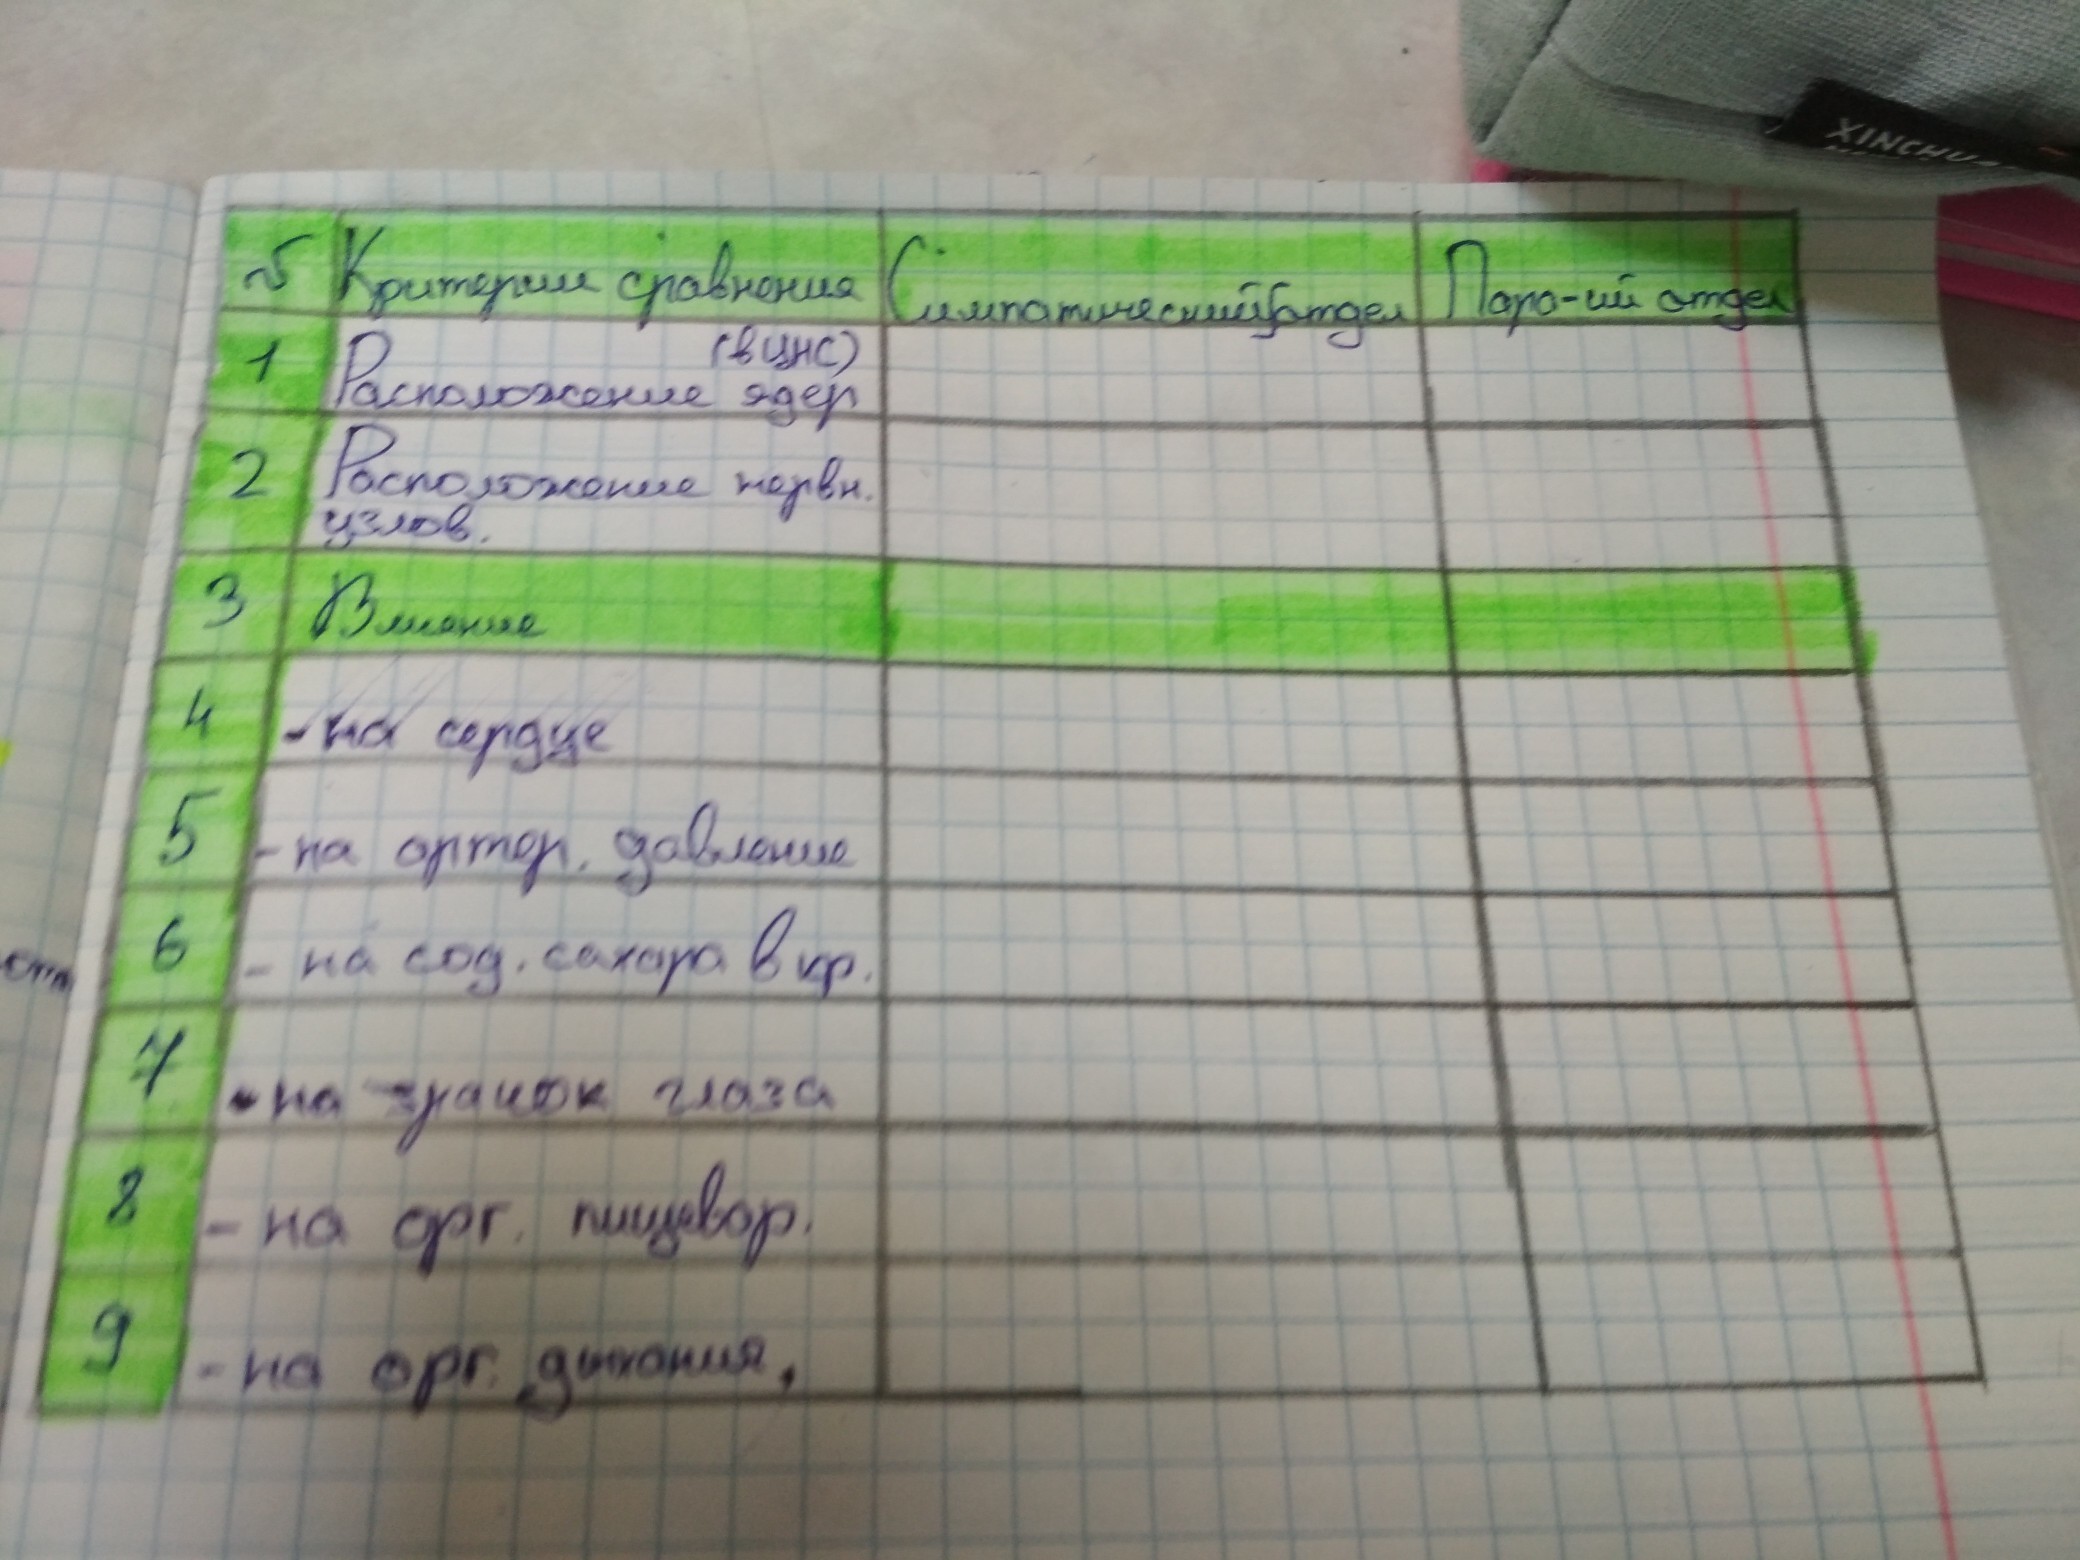 XINCHU
№ Критерии сравнения Симпатический отдел Пара-ий отдел
1 (в ЦНС)
Расположение ядер
2 Расположение нервн.
узлов.
3 Влияние
4 - на сердце
5 - на артер. давление
6 - на сод. сахара в кр.
7 - на зрачок глаза
8 - на орг. пищевар.
9 - на орг. дыхания,